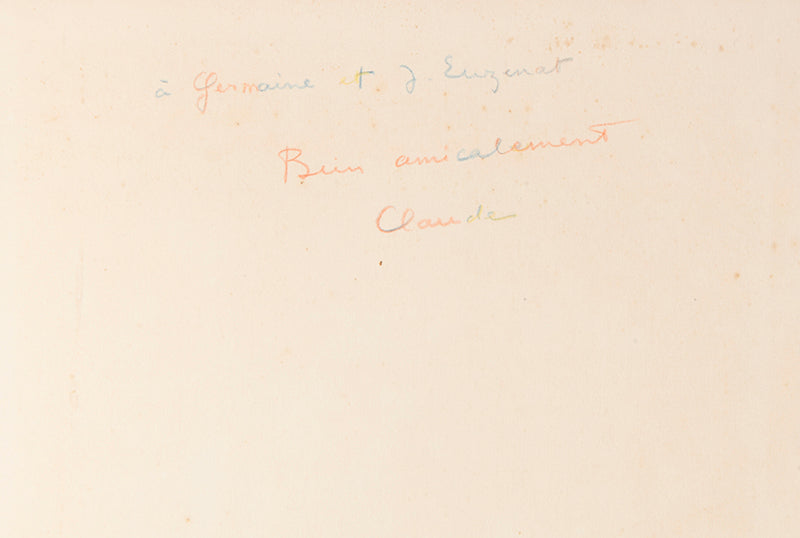 à Germaine et J Euzenat
Bien amicalement
Claude